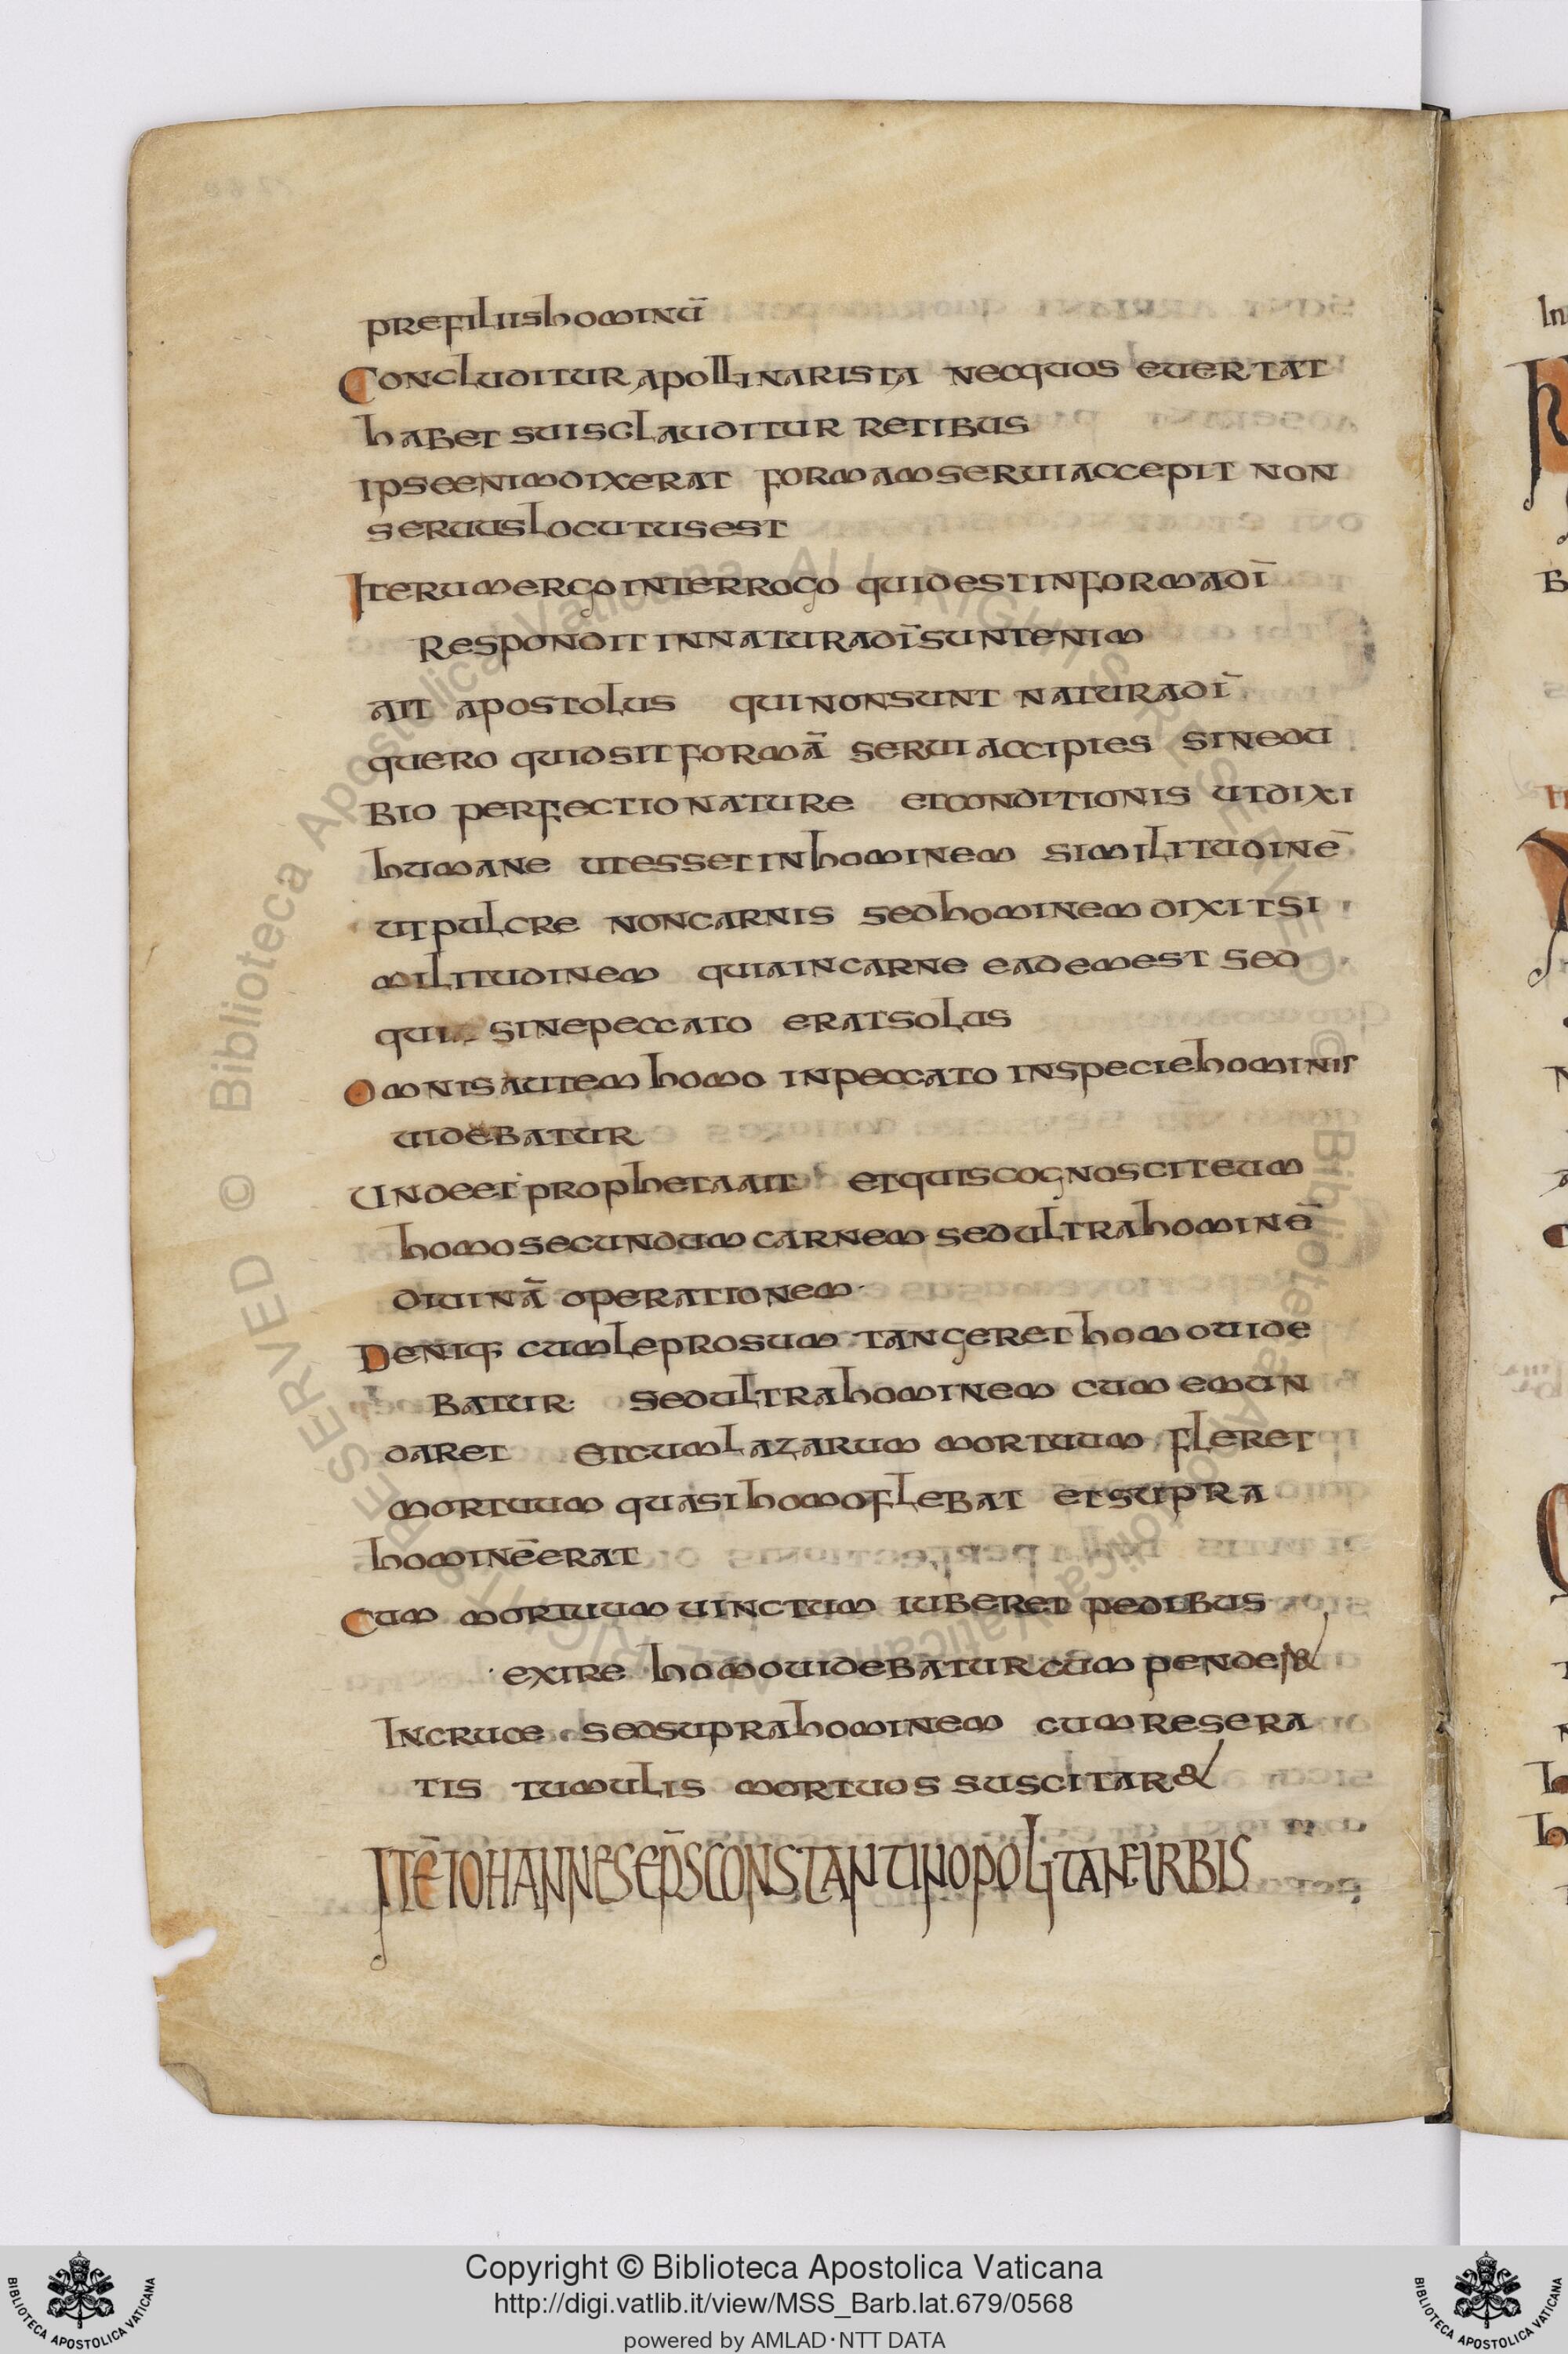 prefiliishominū
Concluditur apollinarista necquos euertat
habet suisclauditur retibus
ipseenimdixerat formamseruiaccepit non
seruuslocutusest
Iterumergointerrogo quidestinformadī
respondit innaturadīsuntenim
ait apostolus quinonsunt naturadī
quero quidsitformā serui accipies sinedu
bio perfectionature etconditionis utdixi
humane utessetinhominem similitudinē
utpulcre noncarnis sedhominem dixitsi
militudinem quiaincarne eademest sed
qui sinepeccato eratsolus
Omnisautem homo inpeccato inspeciehominis
uidebatur
Undeetprophetaait etquiscognosciteum
homosecundum carnem sedultrahominē
diuinā operationem·
Deniq; cumleprosum tangeret homouide
batur· sedultrahominem cum emun
daret etcumlazarum mortuum fleret
mortuum quasihomoflebat etsupra
hominēerat
Cum mortuum uinctum iuberet pedibus
exire homouidebaturcum pender&
Incruce sedsuprahominem cumresera
tis tumulis mortuos suscitar&
ITĒIOHANNESEPS̄CONSTANTINOPOLITANEURBIS
Copyright © Biblioteca Apostolica Vaticana
http://digi.vatlib.it/view/MSS_Barb.lat.679/0568
powered by AMLAD·NTT DATA
BIBLIOTECA APOSTOLICA VATICANA
BIBLIOTECA APOSTOLICA VATICANA